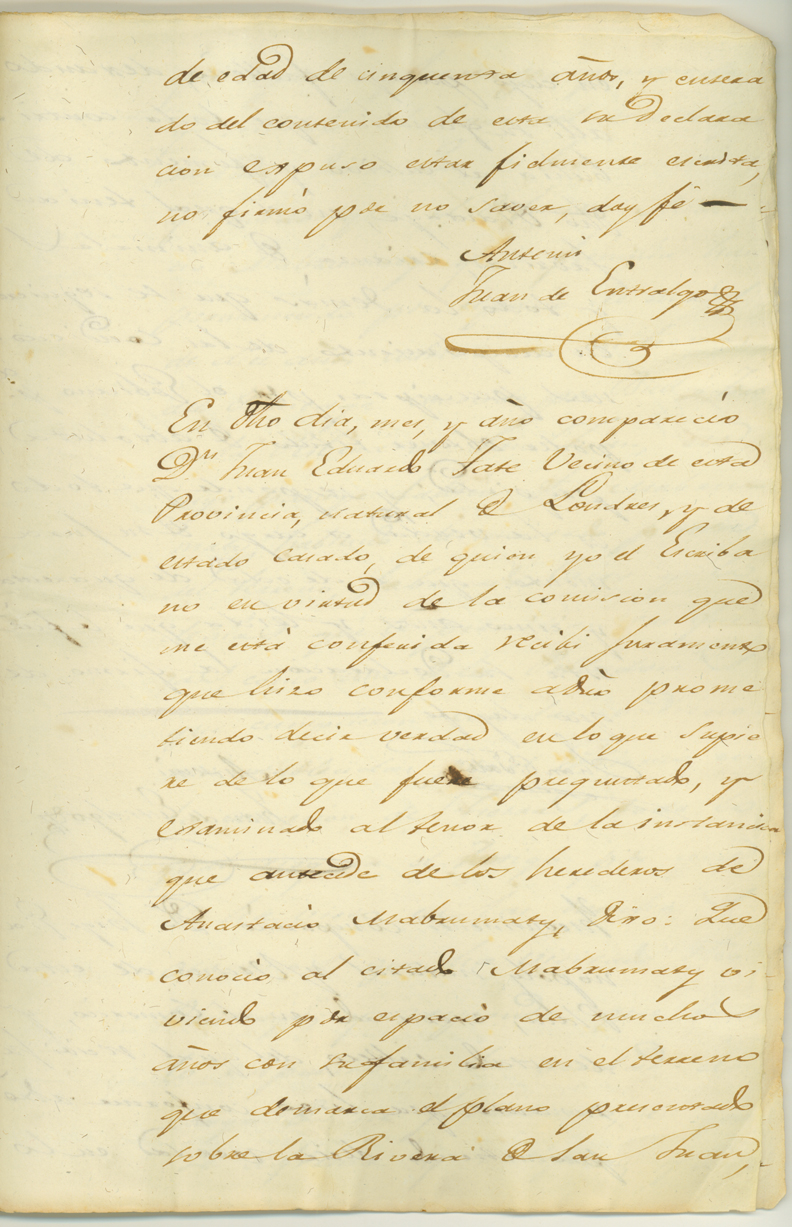 de edad de cinquenta años, y entera
do del contenido de esta su Declara
cion expuso estar fielmente escrita,
no firmó por no saver, doy fé —
Antemi
Juan de Entralgo
En dho dia, mes, y año comparecio
Dn Juan Eduardo Tate Vecino de esta
Provincia, natural de Londres, y de
estado casado, de quien yo el Escriba
no en virtud de la comision que
me está conferida recibi juramento
que hizo conforme a dro prome
tiendo decir verdad en lo que supie
re de lo que fuere preguntado, y
examinado al tenor de la instancia
que antecede de los herederos de
Anastacio Mabrumaty, Dixo: Que
conocio al citado Mabrumaty vi-
viendo por espacio de muchos
años con su familia en el terreno
que demarca el plano presentado
sobre la Rivera de San Juan,